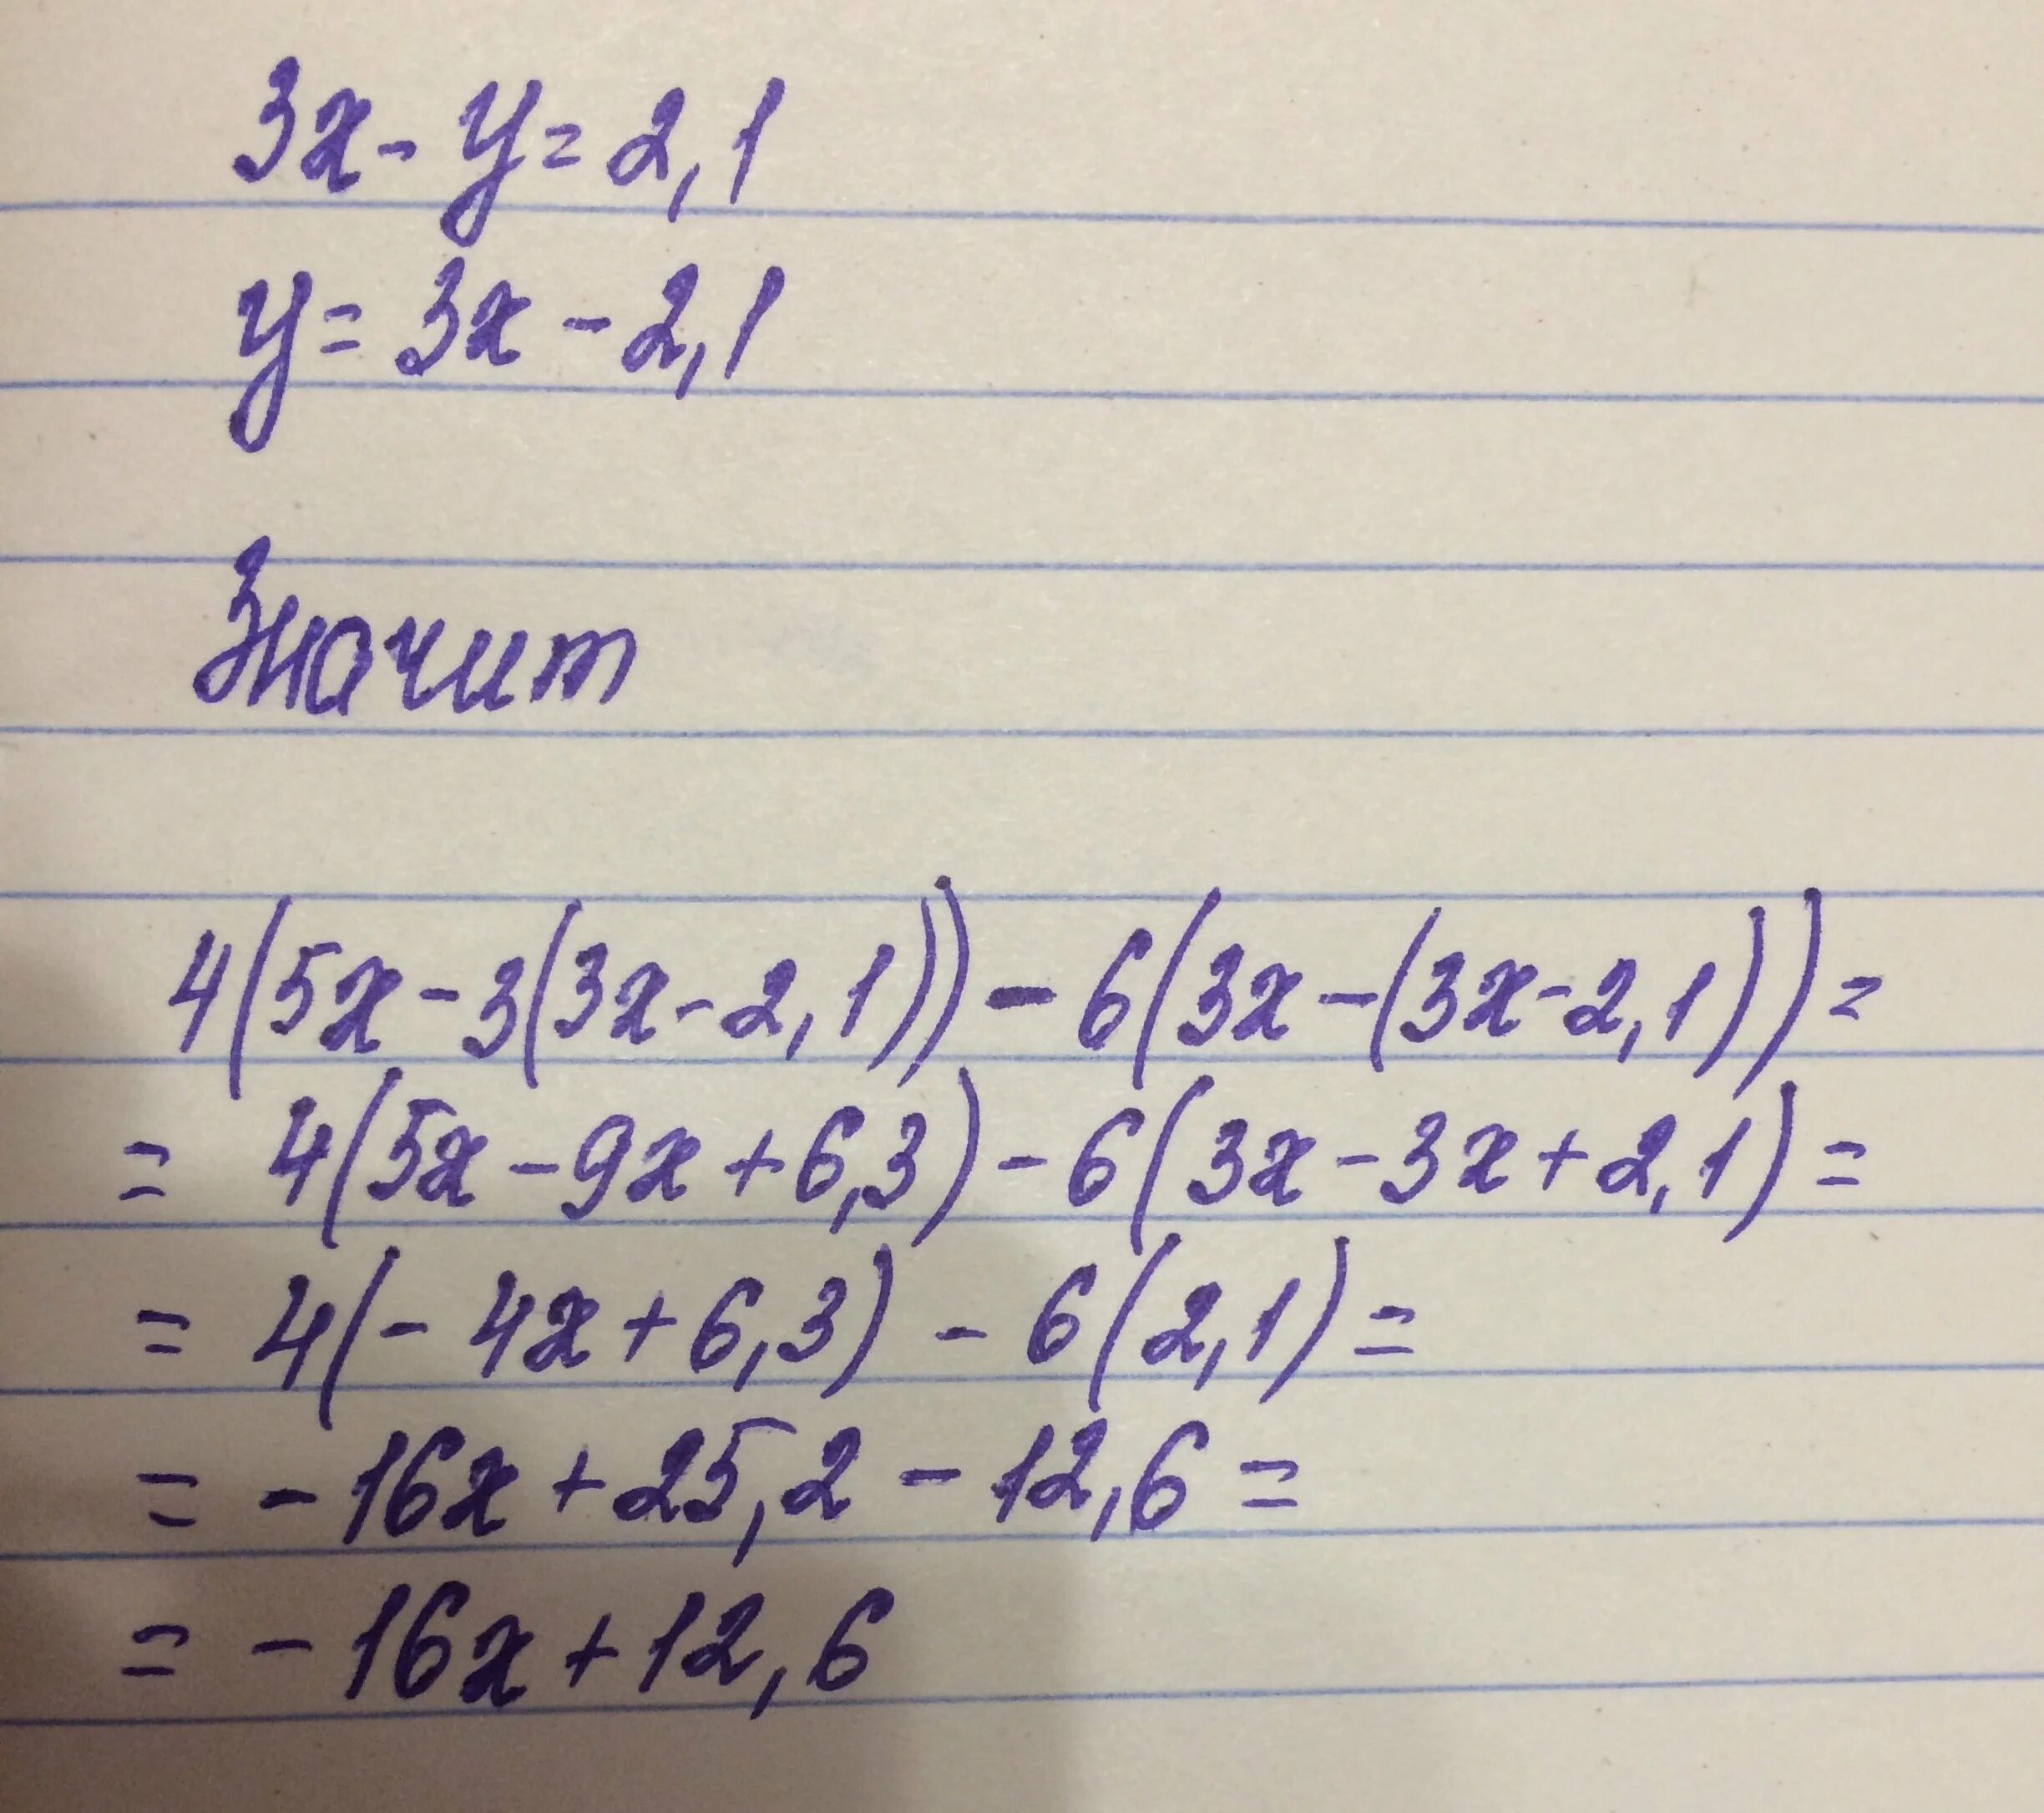 3x - y = 2,1
y = 3x - 2,1
Значит
4(5x - 3(3x - 2,1)) - 6(3x - (3x - 2,1)) =
= 4(5x - 9x + 6,3) - 6(3x - 3x + 2,1) =
= 4(- 4x + 6,3) - 6(2,1) =
= - 16x + 25,2 - 12,6 =
= - 16x + 12,6